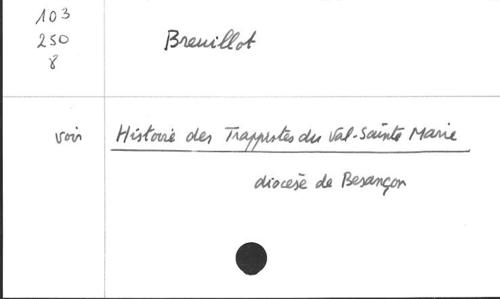 103
250
8
Breuillot
voir Histoire des Trappistes du Val-Sainte Marie
diocèse de Besançon